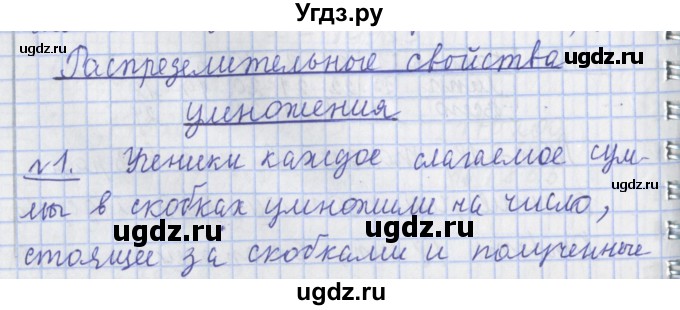 Угдз.ру
ugdz.ru ugdz.ru ugdz.ru
Распределительное свойства
умножения
№1. Ученики каждое слагаемое сум-
мы в скобках умножили на число,
ugdz.ru ugdz.ru
стоящее за скобками и полученные
ugdz.ru